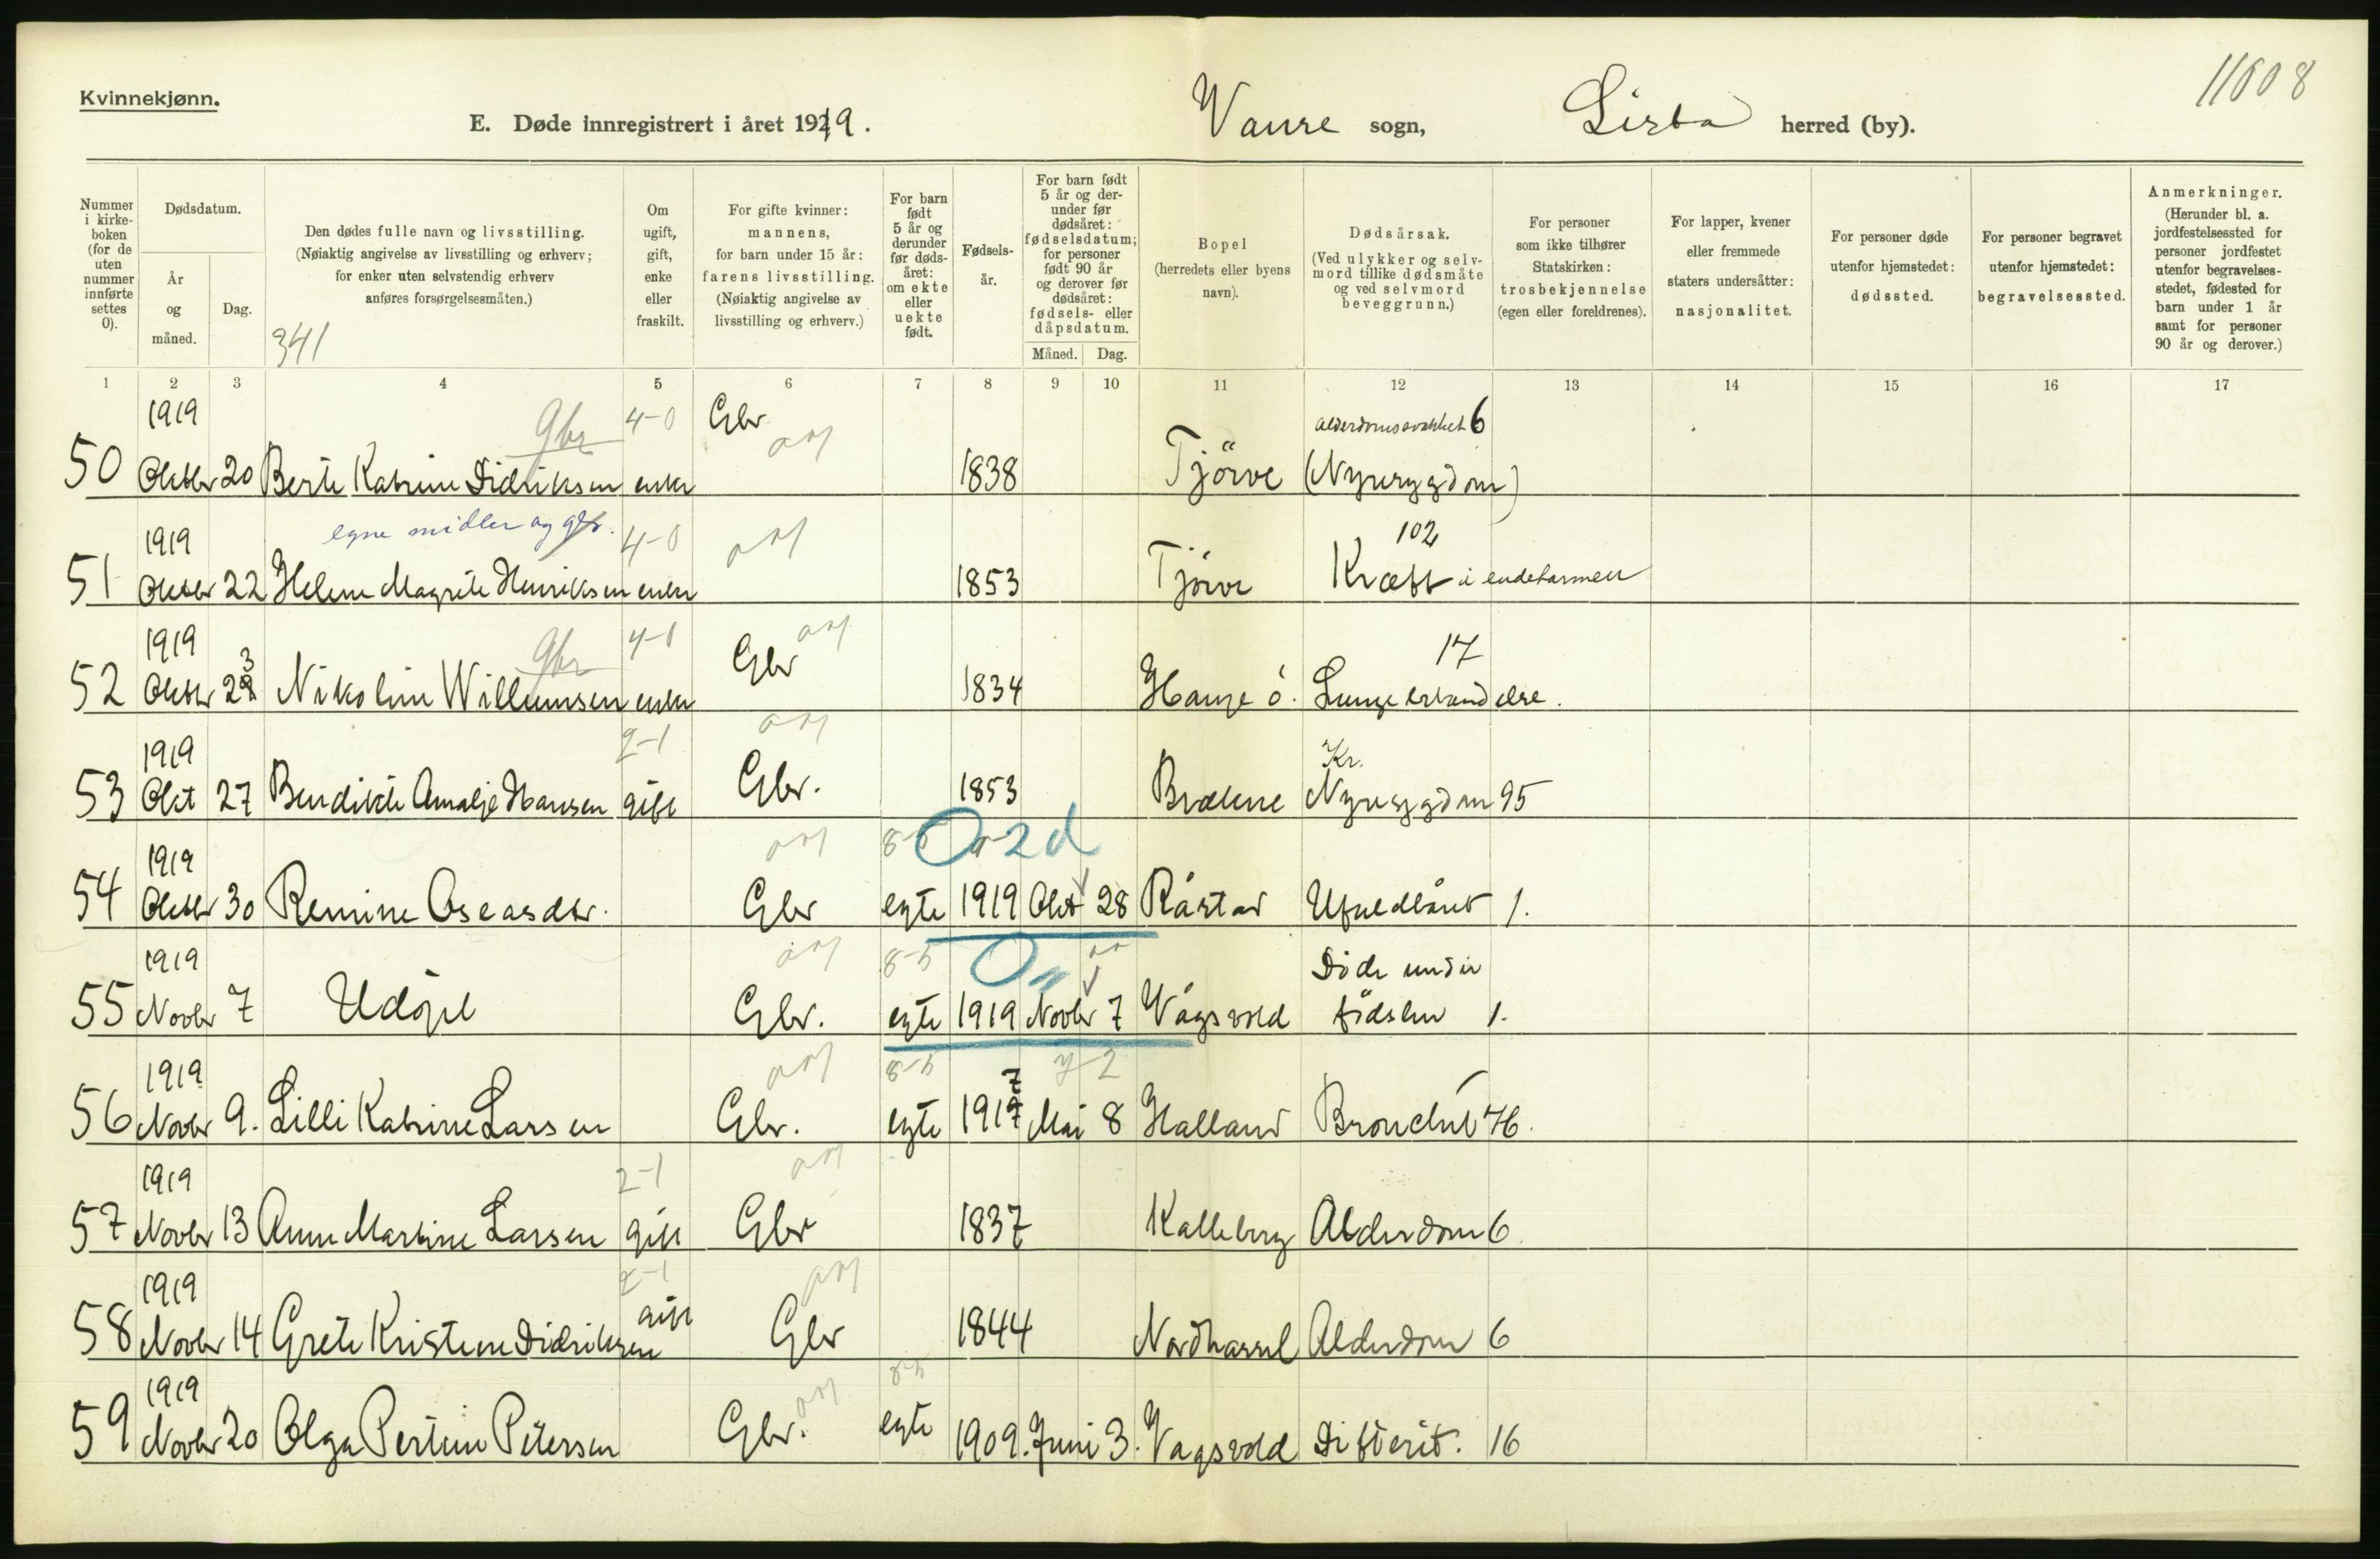 Kvinnekjønn.
11608
E. Døde innregistrert i året 1919. Vanse sogn, Lista herred (by).
Nummer i kirke- boken (for de uten nummer innførte settes 0).
Dødsdatum.
År og måned.
Dag.
Den dødes fulle navn og livsstilling.
(Nøiaktig angivelse av livsstilling og erhverv; for enker uten selvstendig erhverv anføres forsørgelsesmåten.)
341
Om ugift, gift, enke eller fraskilt.
For gifte kvinner: mannens, for barn under 15 år: farens livsstilling. (Nøiaktig angivelse av livsstilling og erhverv.)
For barn født 5 år og derunder før døds- året: om ekte eller uekte født.
Fødsels- år.
For barn født 5 år og der- under før dødsåret: fødselsdatum; for personer født 90 år og derover før dødsåret: fødsels- eller dåpsdatum.
Måned. Dag.
Bopel (herredets eller byens navn).
Dødsårsak. (Ved ulykker og selv- mord tillike dødsmåte og ved selvmord beveggrunn.)
For personer som ikke tilhører Statskirken: trosbekjennelse (egen eller foreldrenes).
For lapper, kvener eller fremmede staters undersåtter: nasjonalitet.
For personer døde utenfor hjemstedet: dødssted.
For personer begravet utenfor hjemstedet: begravelsessted.
Anmerkninger. (Herunder bl. a. jordfestelsessted for personer jordfestet utenfor begravelses- stedet, fødested for barn under 1 år samt for personer 90 år og derover.)
1 2 3 4 5 6 7 8 9 10 11 12 13 14 15 16 17
1919 Gbr 4-0 Gbr alderdomssvakhet 6
50 Oktbr 20 Berte Katrine Didriksen enke 1838 Tjörve (Nyresygdom)
1919 egne midler og gbr. 4-0 102
51 Oktbr 22 Helene Magrete Henriksen enke 1853 Tjörve Kræft i endetarmen
1919 3 Gbr 4-0 Gbr 17
52 Oktbr 28 Nikoline Willumsen enke 1834 Hauge ö. Lungebetændelse.
1919 2-1 Kr.
53 Okt 27 Bendikte Amalje Hansen gift Gbr. 1853 Brælene Nyresygdom 95
1919 8-5 0-2d
54 Oktbr 30 Remine Oseasdtr. Gbr egte 1919 Okt 28 Råstad Ufuldbåret 1.
1919 8-5 Döde under
55 Novbr 7 Udöpt Gbr. egte 1919 Novbr 7 Vågsvold födslen 1.
1919 8-5 7 y-2
56 Novbr 9. Lilli Katrine Larsen Gbr. egte 1917 Mai 8 Halland Bronchit 46.
1919 2-1
57 Novbr 13 Anne Martine Larsen gift Gbr 1837 Kalleberg Alderdom 6
1919 2-1
58 Novbr 14 Grete Kristene Didriksen gift Gbr 1844 Nordhassel Alderdom 6
1919 8-5
59 Novbr 20 Olga Pertine Petersen Gbr. egte 1909. Juni 3. Vagsvold Difterit. 16